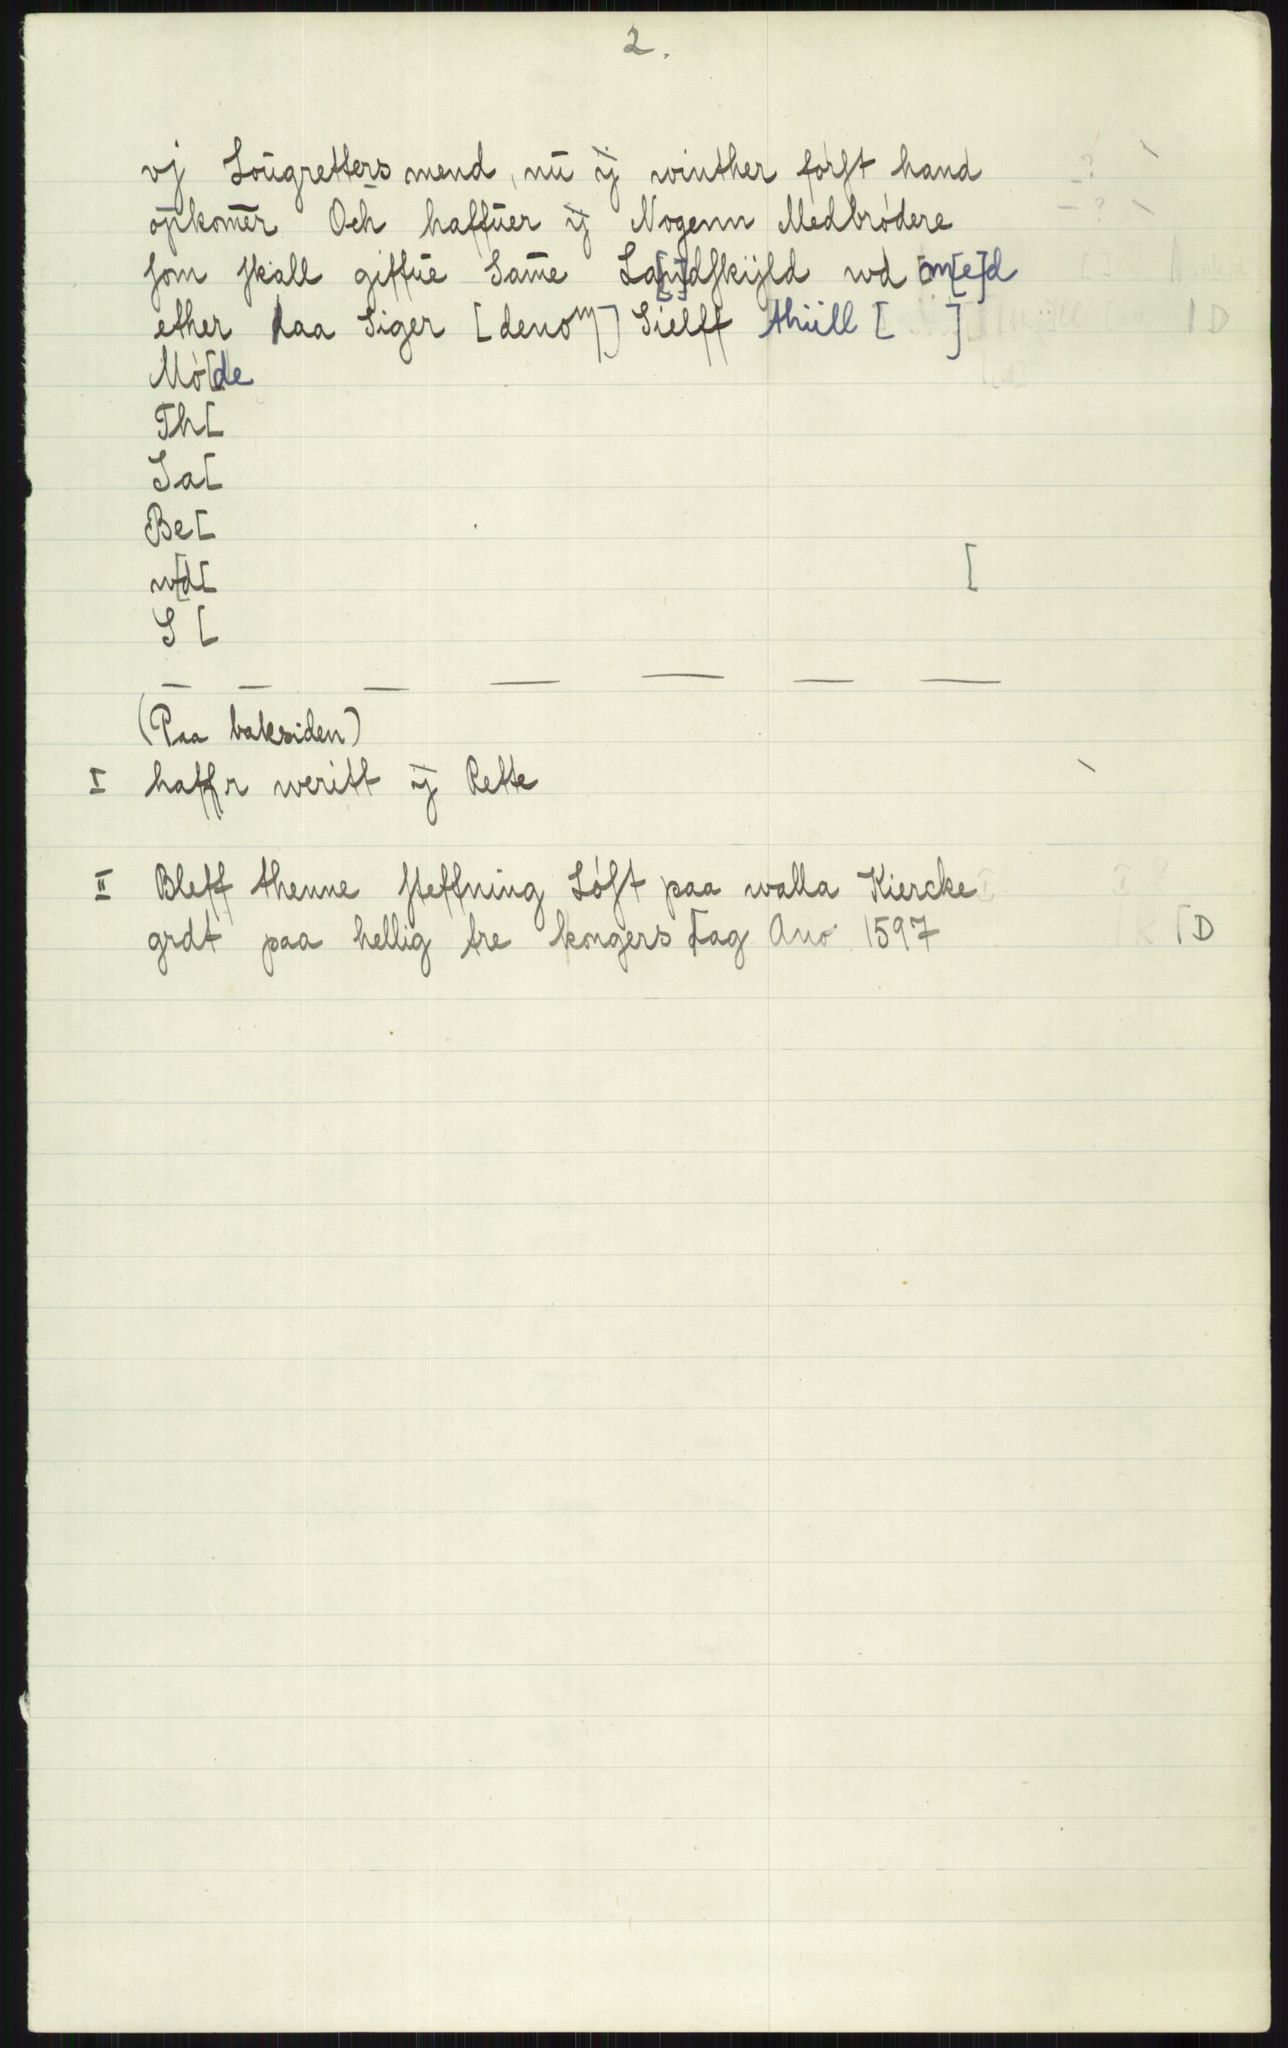 2.
vj Lougretters mend, nu ij winther forst hand
opkomer Och haffuer ij Nogenn Medbrodere
som skall giffue Same La[n]dskijld wd m[e]d
ether daa Siger [denom] Sielff thuill [ ]
Mo[de
Th[
Sa[
Be[
w[d[
[
S [
(Paa baksiden)
I haffr weritt ij Rette
II Bleff thenne steffning Lost paa walla Kiercke
grdt paa hellig tre kongers Dag Ano 1597